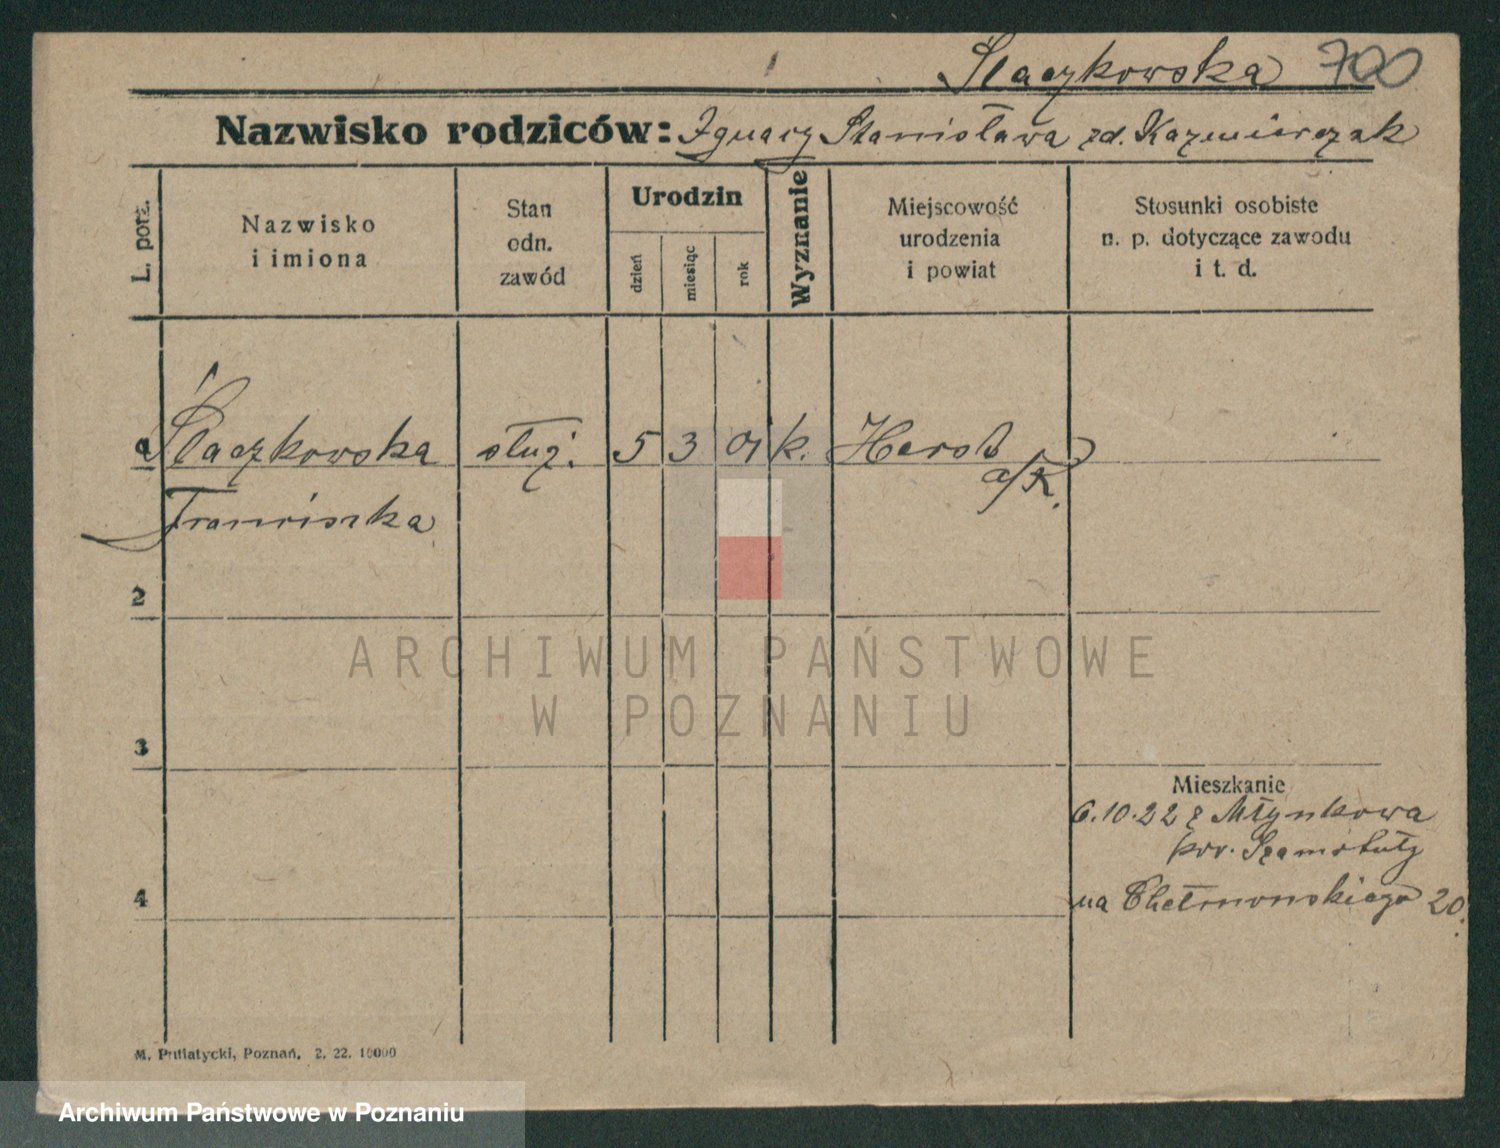 Ślaczkowska 700
Nazwisko rodziców: Ignacy Stanisława zd. Kaźmierczak
L. porz.
Nazwisko
i imiona
Stan
odn.
zawód
Urodzin
dzień
miesiąc
rok
Wyznanie
Miejscowość
urodzenia
i powiat
Stosunki osobiste
n. p. dotyczące zawodu
i t. d.
Ślaczkowska służ. 5 3 01 k. Horst
a/R.
Franciszka
2
ARCHIWUM PAŃSTWOWE
W POZNANIU
3
Mieszkanie
6.10.22 z Młynkowa
pow. Szamotuły
4
na Chełmońskiego 20.
M. Putiatycki, Poznań. 2. 22. 10000
Archiwum Państwowe w Poznaniu